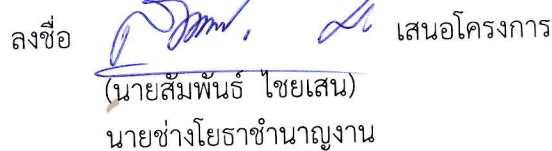 ลงชื่อ เสนอโครงการ
(นายสัมพันธ์ ไชยเสน)
นายช่างโยธาชำนาญงาน